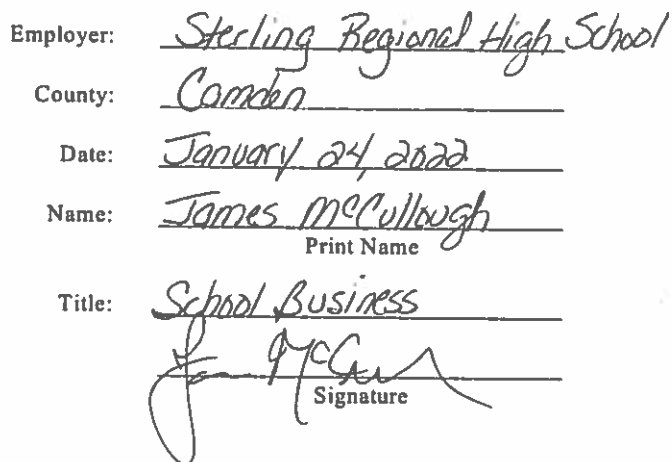 Employer: Sterling Regional High School
County: Camden
Date: January 24, 2022
Name: James McCullough
Print Name
Title: School Business
Signature